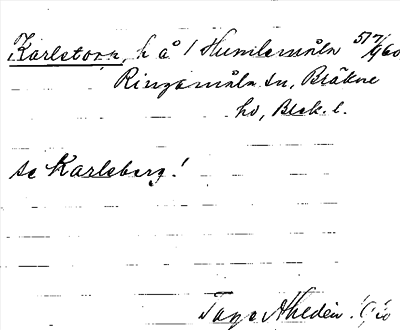 Karlstorp, h å 1 Humlamåla 57/60
Ringamåla sn, Bräkne
hd, Blek. l.
se Karlsberg!
Tage Ahldén